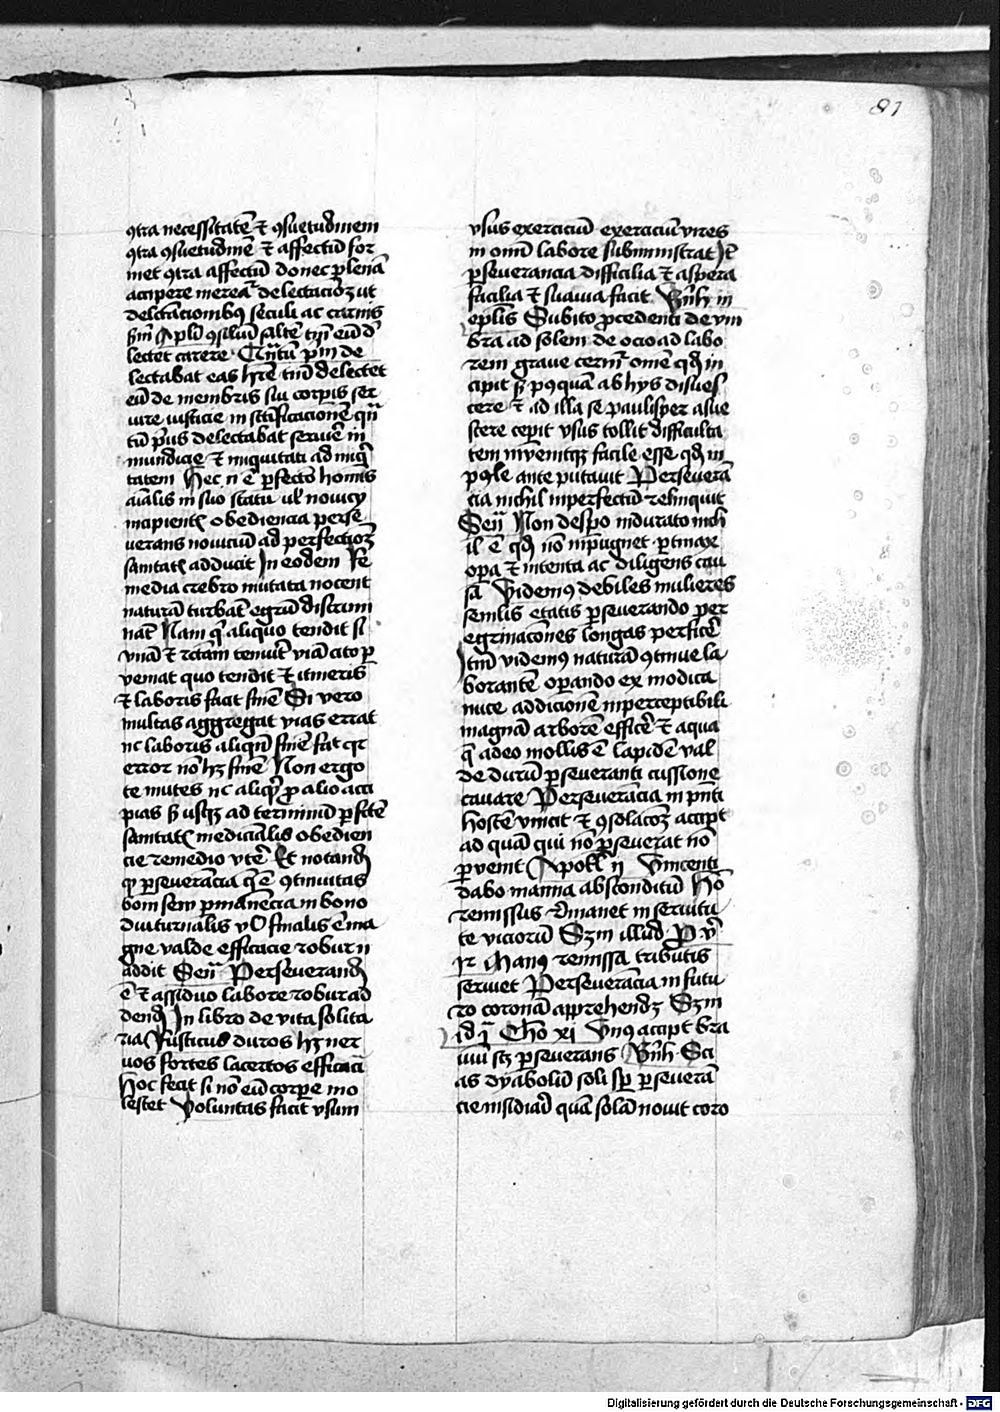 81
ꝯtra necessitatē ⁊ ꝯsuetudinem
ꝯtra ꝯsuetudinē ⁊ affectū for
met ꝯtra affectū donec plenā
accipere mereat᷑ delectacōꝫ ut
delectacionibꝰ seculi ac carnis
ꝯsiliū saltē eū de
lectet carere
lectabat eas hr̄e tm̄ delectet
eū de membris sui corpis ser
uire iusticie in sctīficacionē qn̄
tū pͥus delectabat seruir̄e in
mundicie ⁊ iniquitati ad iniqͥ
tatem Hec n̄ ē ꝑfecta homīs
aialis in suo statu ul̓ nouicy
incipientꝭ obediencia perse
uerans nouiciū ad perfectioꝫ
sanitatꝭ adducit In eodem Re
media crebro mutata nocent
naturā turbāt egrū discrim
nāt Nam qͥ aliquo tendit si
vnā ⁊ rc̄tam tenuit viā cito ꝑ
veniat quo tendit ⁊ itineris
⁊ laboris facit finē Si vero
multas aggregat vias errat
nc̄ laboris aliqm̄ finē fac̄ qr̄
error nō hꝫ finē Non ergo
te mutes nc̄ aliqͥd ꝓ alio acci
pias sꝫ usqꝫ ad terminū ꝑfc̄te
sanitatꝭ medicinalis obedien
cie remedio vtēr̄ Et notand̄
qͩ ꝑseuerācia qͣ ē ꝯtinuitas
boni seu ꝑmanēcia in bono
diuturnalis vl̓ finalis ē ma
gne valde efficacie robur n̄
addit Sen̄ Perseuerand̄
ē ⁊ assiduo labore robur ad
dend̄ In libro de vita solita
ria Rusticus duros hꝫ ner
uos fortes lacertos efficaciā
hoc fecit si nō eū corpe mo
lestet Voluntas facit vsum
vsus exerciciū exerciciū vires
in omī labore subministrat It̄
ꝑseuerancia difficilia ⁊ aspera
facilia ⁊ suauia facit Bn̄h in
epl̄is Subito ꝓcedenti de vm
bra ad solem de ocio ad labo
rem graue cernit᷑ omē qd̄ in
cipit sꝫ pꝰquā ab hys disues
cere ⁊ ad illa se paulisper assue
scere cepit vsus tollit difficulta
tem inuenitqꝫ facile esse qd̄ im
pꝰle ante putauit Perseuerā
cia nichil inperfectū relinquit
Sen̄ Non despero indurato nich
il ē qd̄ nō inpugnet ꝑtinax
oꝑa ⁊ intenta ac diligens cau
sā Videmꝰ debiles mulieres
senilis etatis ꝑseuerando per
egrinacōnes longas perficer̄e
Itm̄ videmꝰ naturā ꝯtinue la
borantē oꝑando ex modica
nuce addicionē inperceptibili
magnā arborē efficer̄e ⁊ aqua
qͣ adeo mollis ē lapidē val
de durū ꝑseueranti cussione
cauare Perseuerācia in pn̄ti
hostē vincit ⁊ ꝯsolacōꝫ accipit
ad quā qui nō ꝑseuerat nō
ꝑuenit Apoꝯ ij Vincenti
dabo manna absconditū Hō
remissus remanet in seruitu
te viciorū Scdm illud Pͦuͬ
xii Manꝰ remissa tributis
seruiet Perseuerācia in futu
ro coronā apprehendꝫ Scdm
id jͣ Cho ix Vnꝰ accipit bra
uiū scꝫ ꝑseuerans Bn̄h Sci
as dyabolū soli sp̄ ꝑseuerā
cie insidiari quā solā nouit coro
Digitalisierung gefördert durch die Deutsche Forschungsgemeinschaft - DFG